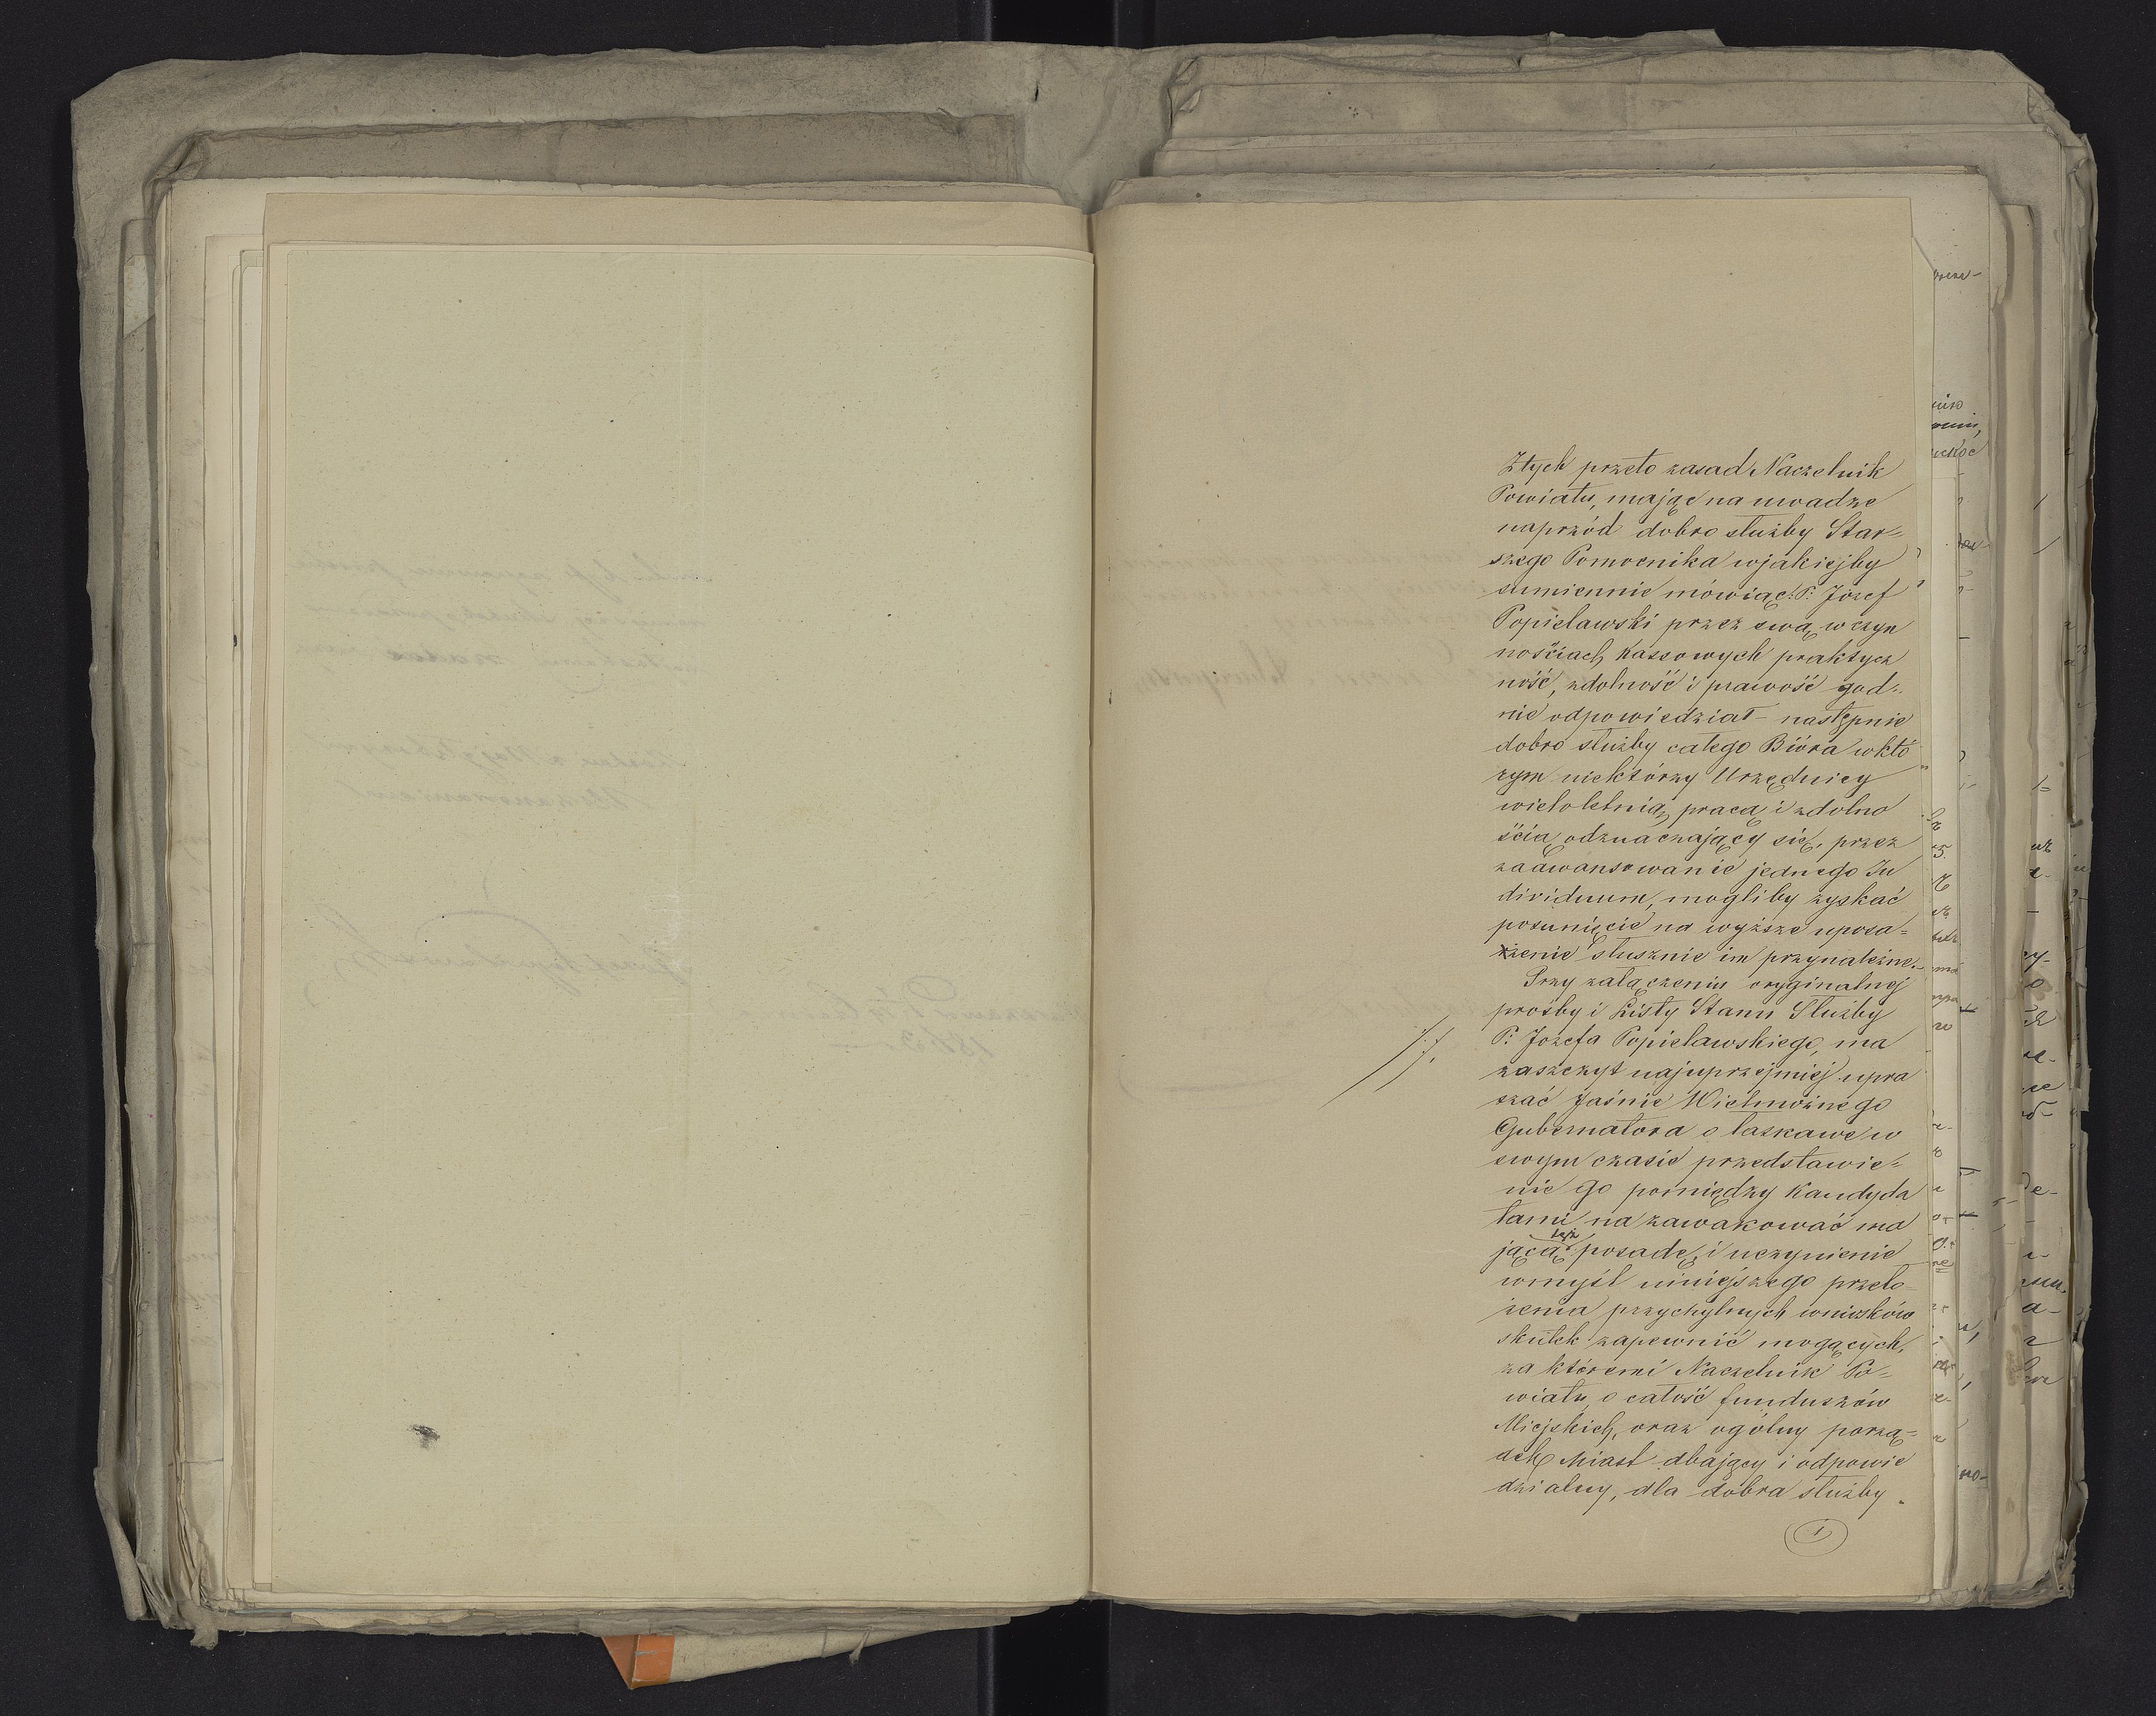 Ztych przeto zasad Naczelnik
Powiatu, mając na uwadze
naprzód dobro służby Star=
szego Pomocnika wjakiejby
sumiennie mówiąc: P. Józef
Popielawski przez swą w czyn
nościach kassowych praktycz
ność, zdolność i prawość god=
nie odpowiedział – następnie
dobro służby całego Bióra wktó
rym niektórzy Urzędnicy
wieloletnią pracą i zdolno
ścią odznaczający się, przez
zaawansowanie jednego In
dividuum, mogliby zyskać
posunięcie na wyższe uposa=
żenie słusznie im przynależne.–
Przy załączeniu oryginalnej
prośby i Listy Stanu Służby
P: Józefa Popielawskiego, ma
zaszczyt najuprzejmiej upra
szać Jaśnie Wielmożnego
Gubernatora o łaskawe w
swym czasie przedstawie=
nie go pomiędzy Kandyda
tami na zawakować ma
jącą tęż posadę, i uczynienie
wmyśl niniejszego przeło
żenia przychylnych wniosków
skutek zapewnić mogących,
za któremi Naczelnik Po=
wiatu, o całość funduszów
Miejskich, oraz ogólny porzą=
dek Miast dbający i odpowie
dzialny, dla dobra służby
1